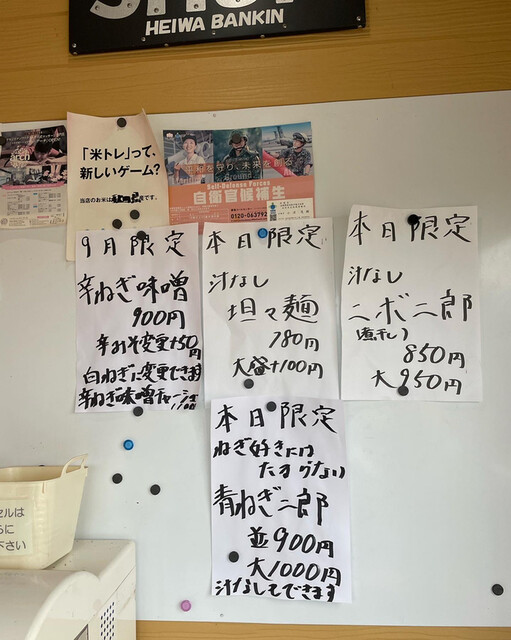 HEIWA BANKIN
「米トレ」って、
新しいゲーム?
Self-Defense Forces
自衛官候補生
0120-063792
9月限定
辛ねぎ味噌
900円
辛みそ変更+50円
白ねぎに変更できます
辛ねぎ味噌チャーシュー
本日限定
汁なし
坦々麺
780円
大盛+100円
本日限定
汁なし
ニボ二郎
(煮干し)
850円
大950円
本日限定
ねぎ好きには
たまらない
青ねぎ二郎
並900円
大1000円
汁なしもできます
セルは
下さい